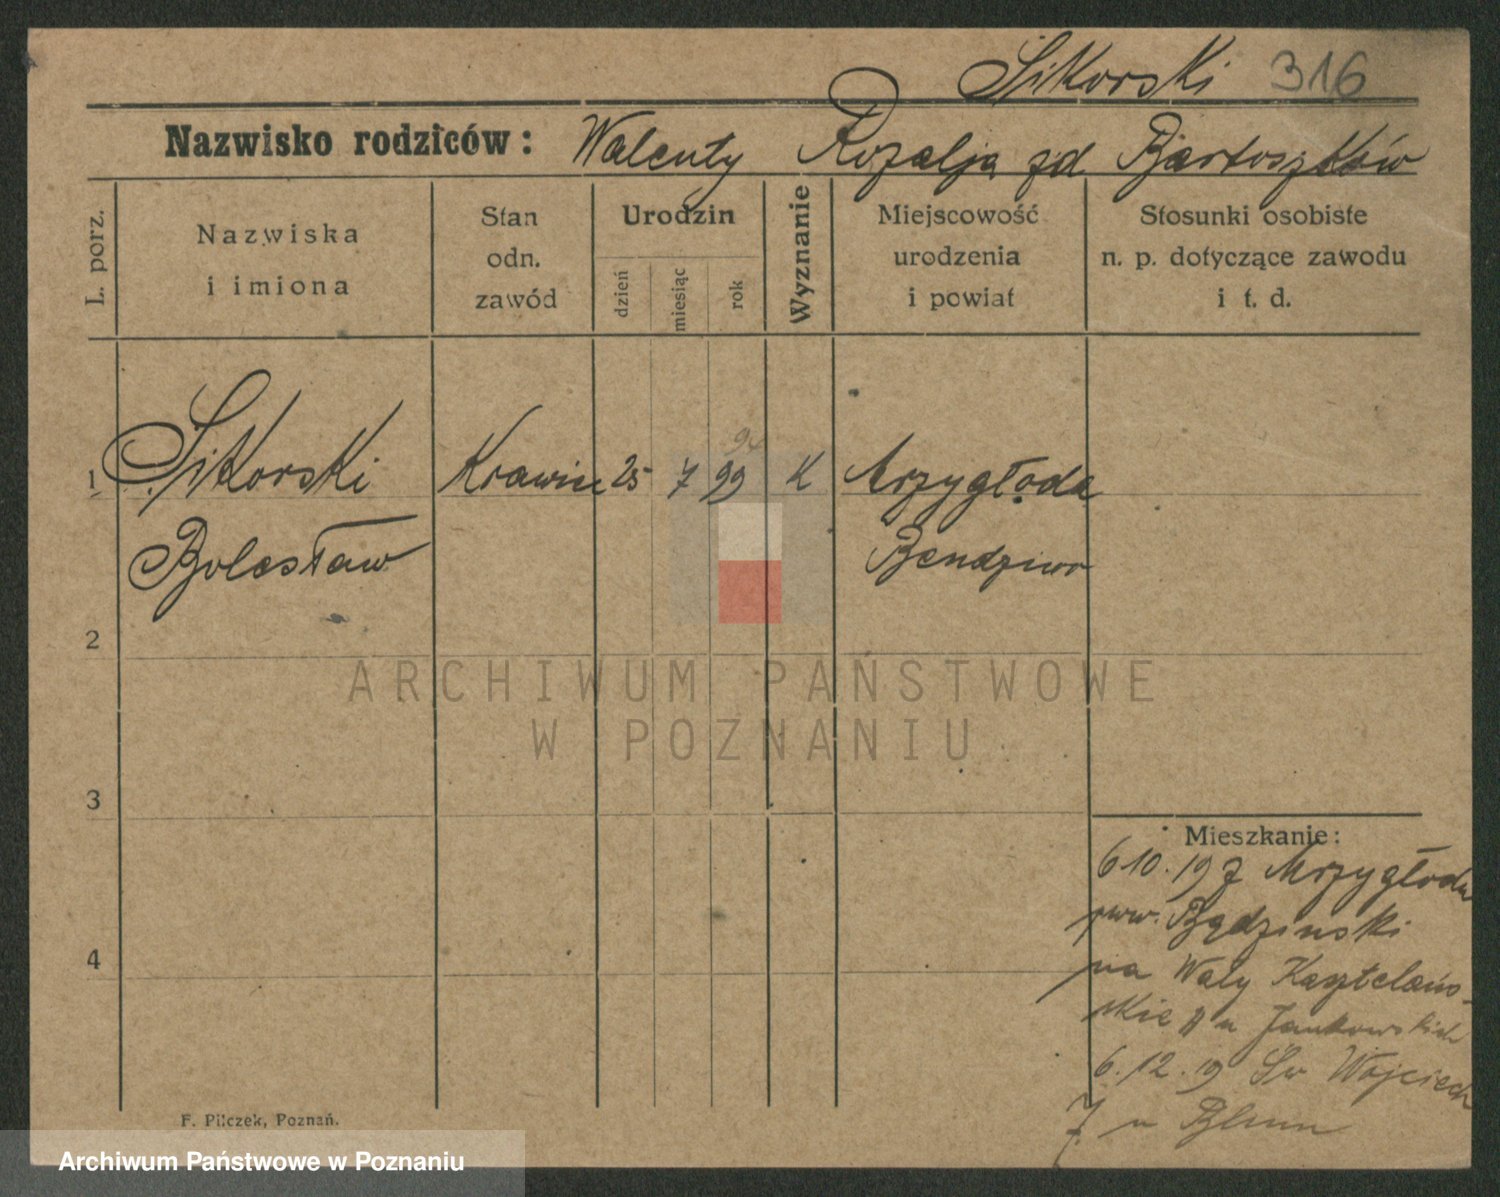 Sikorski 316
Nazwisko rodziców: Walenty Rozalja zd Bartoszków
L. porz.
Nazwiska
i imiona
Stan
odn.
zawód
Urodzin
dzień
miesiąc
rok
Wyznanie
Miejscowość
urodzenia
i powiat
Stosunki osobiste
n. p. dotyczące zawodu
i t. d.
94
1 Sikorski Krawiec 25 7 99 K Mrzygłoda
Bolesław Bendziwo
2
ARCHIWUM PAŃSTWOWE
W POZNANIU
3
4
Mieszkanie:
6.10.19 z Mrzygłoda
pow. Będzinski
na Wały Kasztelańs-
skie u Jankowskich
6.12.19 Św Wojciech
7 u Blum
F. Pilczek, Poznań.
Archiwum Państwowe w Poznaniu